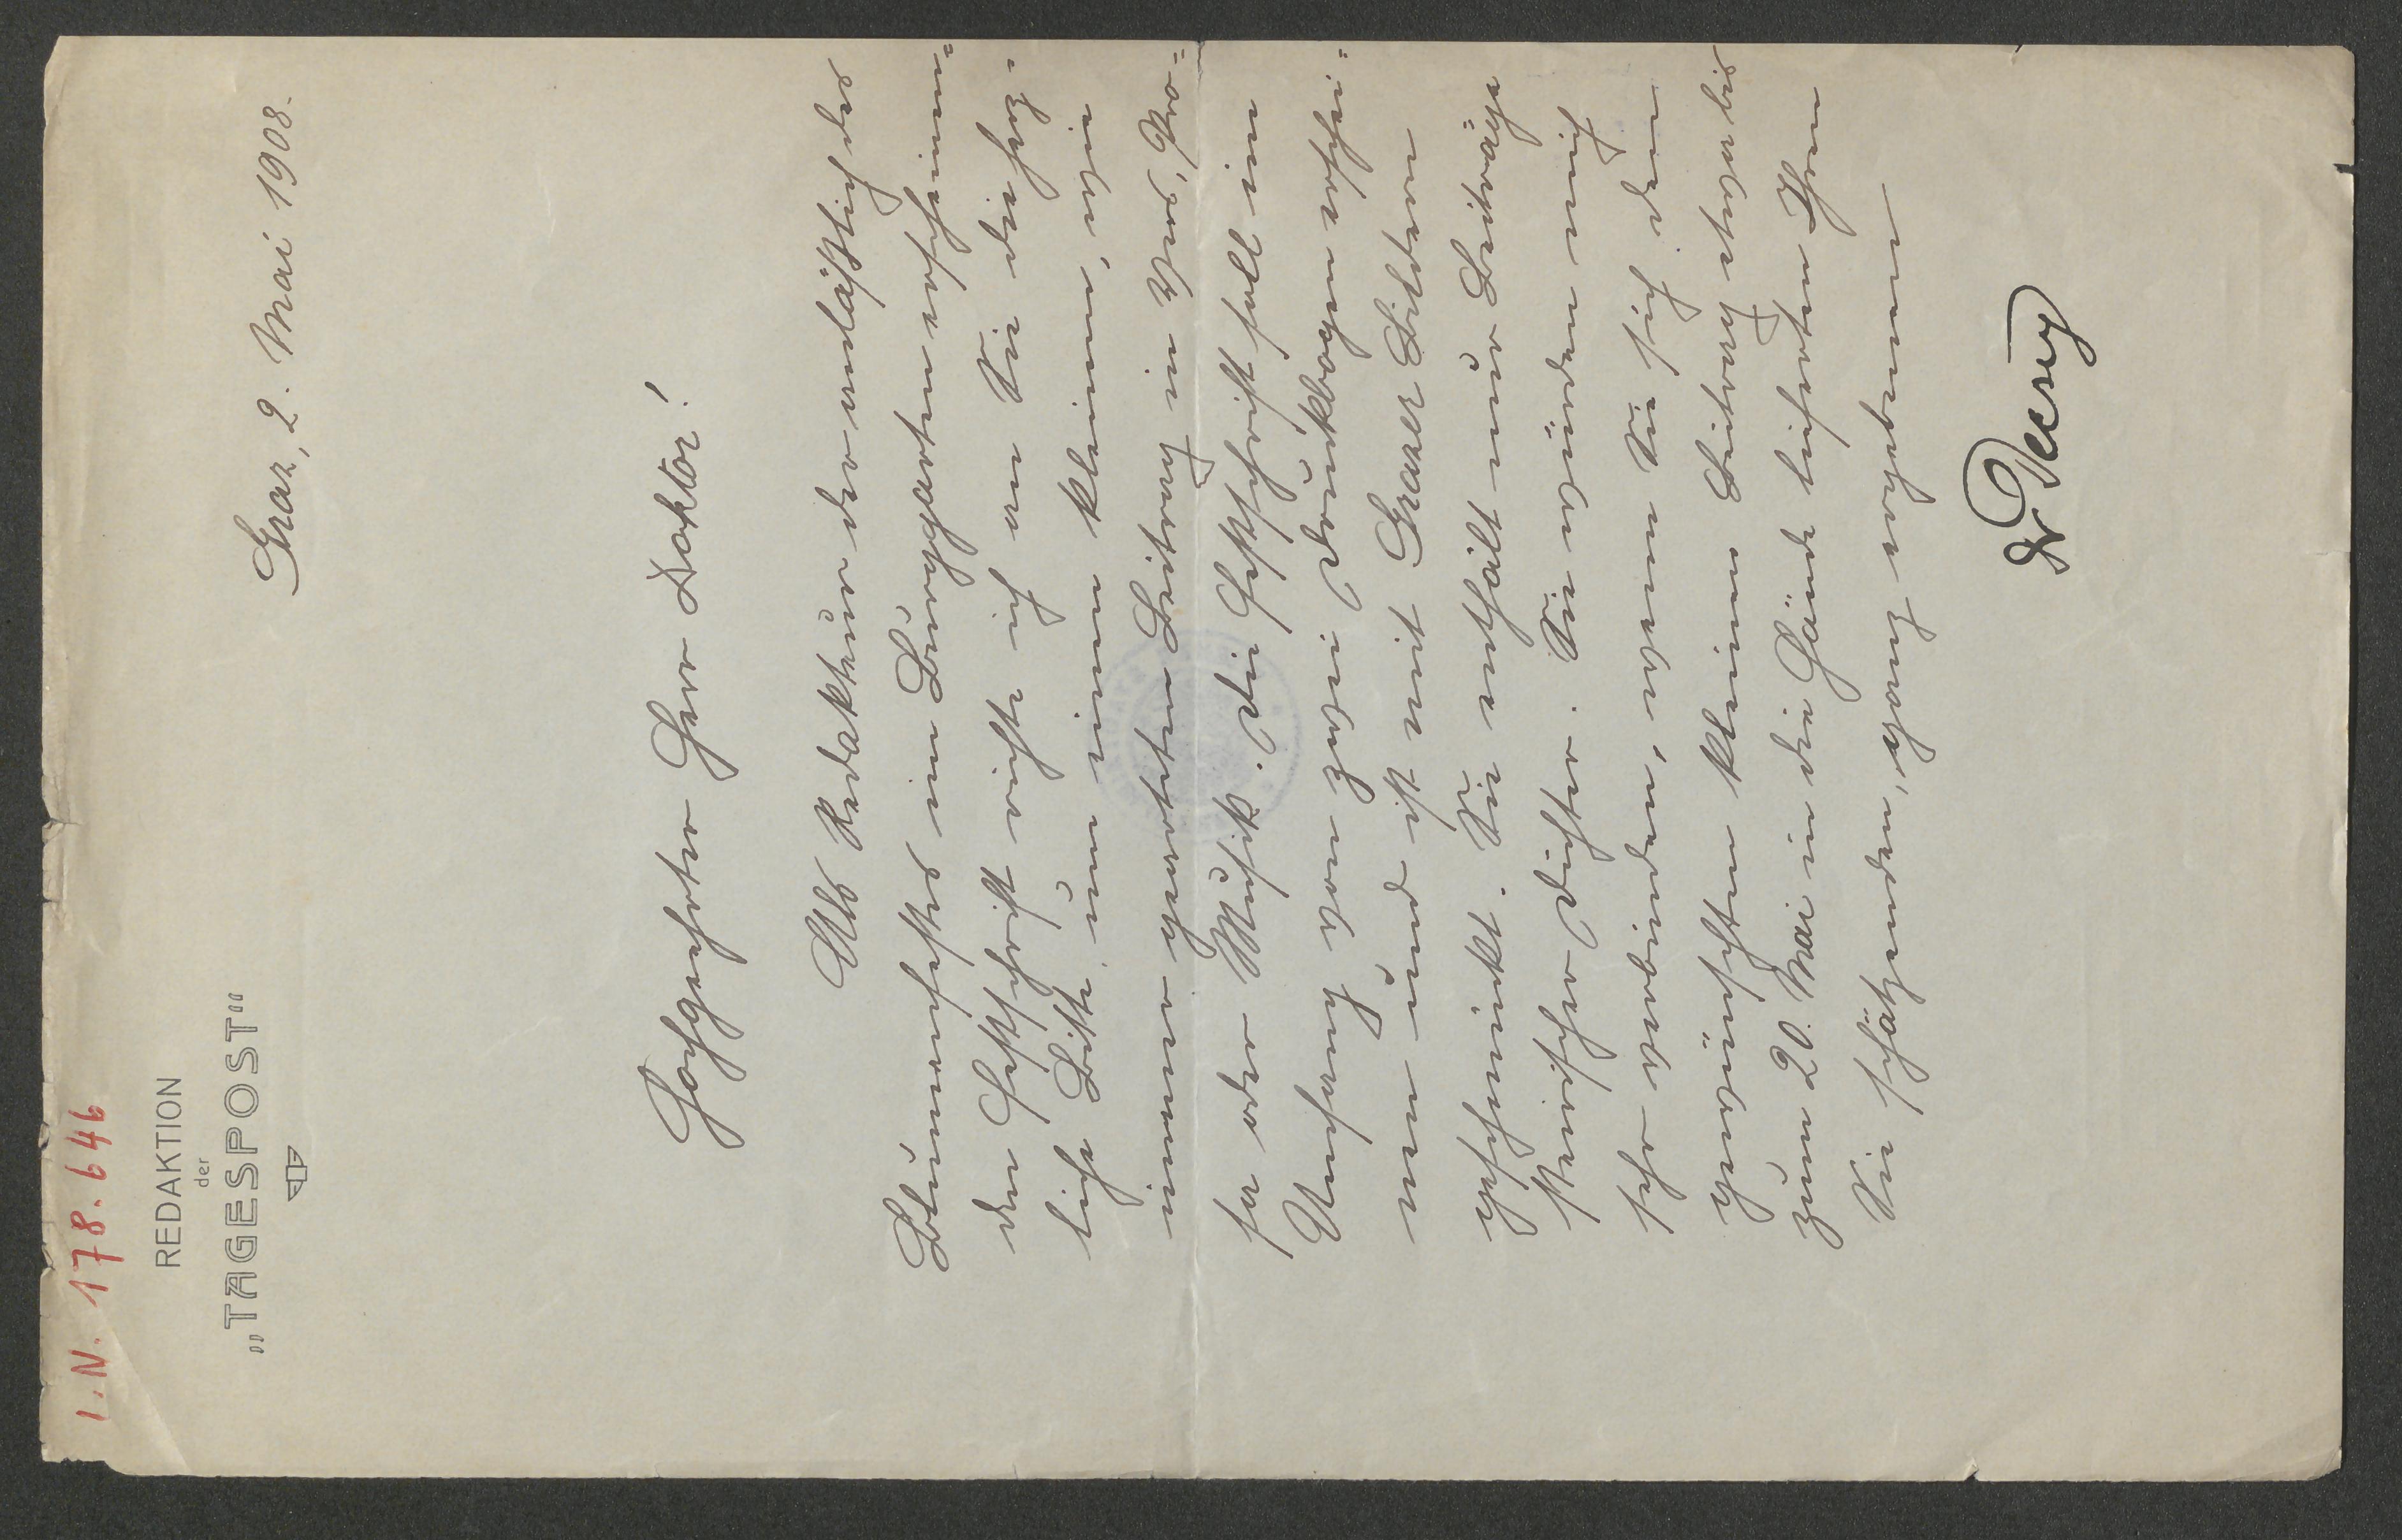 I.N. 178.646
REDAKTION
der
„TAGESPOST“
Graz, 2. Mai 1908.
Hochgeehrter Herr Doktor!
Als Redakteur der anläßlich des
Blumenfestes im Burggarten erscheinen=
den Festschrift richte ich an Sie die herz=
liche Bitte, um einen kleinen, wie
immer gearteten Beitrag in Vers, Pro=
sa oder Musik. Die Festschrift soll im
Umfang von zwei Druckbogen erschei=
nen und ist mit Grazer Bildern
geschmückt. Sie enthält nur Beiträge
steirischer Dichter. Sie würden mich
sehr verbinden, wenn Sie sich den
gewünschten kleinen Beitrag etwa bis
zum 20. Mai in die Hände lieferten Ihrem
Sie schätzenden, ganz ergebenen
Dr